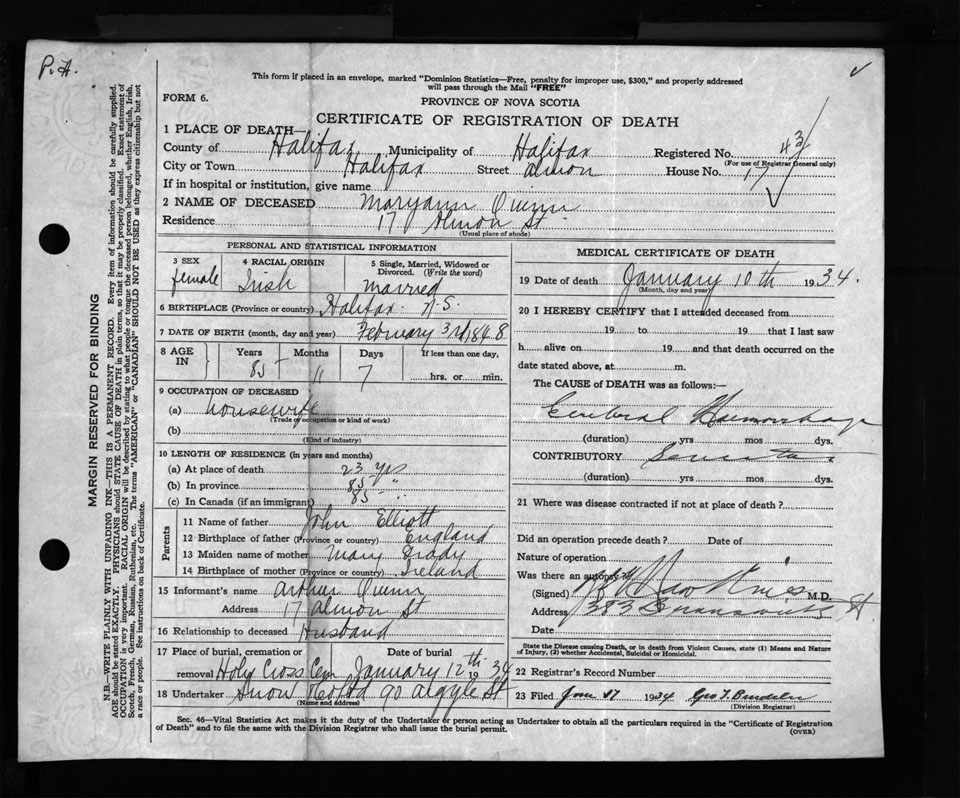 P.A.
This form if placed in an envelope, marked "Dominion Statistics—Free, penalty for improper use, $300," and properly addressed
will pass through the Mail "FREE"
FORM 6.
PROVINCE OF NOVA SCOTIA
CERTIFICATE OF REGISTRATION OF DEATH
MARGIN RESERVED FOR BINDING
N.B.—WRITE PLAINLY WITH UNFADING INK—THIS IS A PERMANENT RECORD. Every item of information should be carefully supplied.
AGE should be stated EXACTLY. PHYSICIANS should STATE CAUSE OF DEATH in plain terms, so that it may be properly classified. Exact statement of
OCCUPATION is very important. RACIAL ORIGIN will be described by stating to what people or tongue the deceased person belonged, whether English, Irish,
Scotch, French, German, Russian, Ruthenian, etc. The terms "AMERICAN" or "CANADIAN" SHOULD NOT BE USED as they express citizenship but not
a race or people. See instructions on back of Certificate.
1 PLACE OF DEATH
County of Halifax Municipality of Halifax Registered No. 43
(For use of Registrar General only)
City or Town Halifax Street Almon House No. 17
If in hospital or institution, give name
2 NAME OF DECEASED Maryann Quinn
Residence 17 Almon St
(Usual place of abode)
PERSONAL AND STATISTICAL INFORMATION
3 SEX female
4 RACIAL ORIGIN Irish
5 Single, Married, Widowed or Divorced. (Write the word) Married
6 BIRTHPLACE (Province or country) Halifax N.S.
7 DATE OF BIRTH (month, day and year) February 3rd 1848
8 AGE IN Years 85 Months 11 Days 7 If less than one day, hrs. or min.
9 OCCUPATION OF DECEASED
(a) Housewife
(Trade or occupation or kind of work)
(b)
(Kind of industry)
10 LENGTH OF RESIDENCE (in years and months)
(a) At place of death 23 yrs
(b) In province 85 "
(c) In Canada (if an immigrant) 85 "
Parents
11 Name of father John Elliott
12 Birthplace of father (Province or country) England
13 Maiden name of mother Mary Grady
14 Birthplace of mother (Province or country) Ireland
15 Informant's name Arthur Quinn
Address 17 Almon St
16 Relationship to deceased Husband
17 Place of burial, cremation or removal Holy Cross Cem Date of burial January 12th 1934
18 Undertaker Snow & Co Ltd 90 Argyle St
(Name and address)
MEDICAL CERTIFICATE OF DEATH
19 Date of death January 10th 1934.
(Month, day and year)
20 I HEREBY CERTIFY that I attended deceased from
19 to 19 that I last saw
h alive on 19 and that death occurred on the
date stated above, at m.
The CAUSE of DEATH was as follows:—
Cerebral Haemorrhage
(duration) yrs mos dys.
CONTRIBUTORY
(duration) yrs mos dys.
21 Where was disease contracted if not at place of death?
Did an operation precede death? Date of
Nature of operation
Was there an autopsy?
(Signed) Hawkins M.D.
Address 383 Brunswick St
Date
State the Disease causing Death, or in death from Violent Causes, state (1) Means and Nature
of Injury, (2) whether Accidental, Suicidal or Homicidal.
22 Registrar's Record Number
23 Filed Jan 17 1934 Geo T.
(Division Registrar)
Sec. 46—Vital Statistics Act makes it the duty of the Undertaker or person acting as Undertaker to obtain all the particulars required in the "Certificate of Registration
of Death" and to file the same with the Division Registrar who shall issue the burial permit.
(OVER)